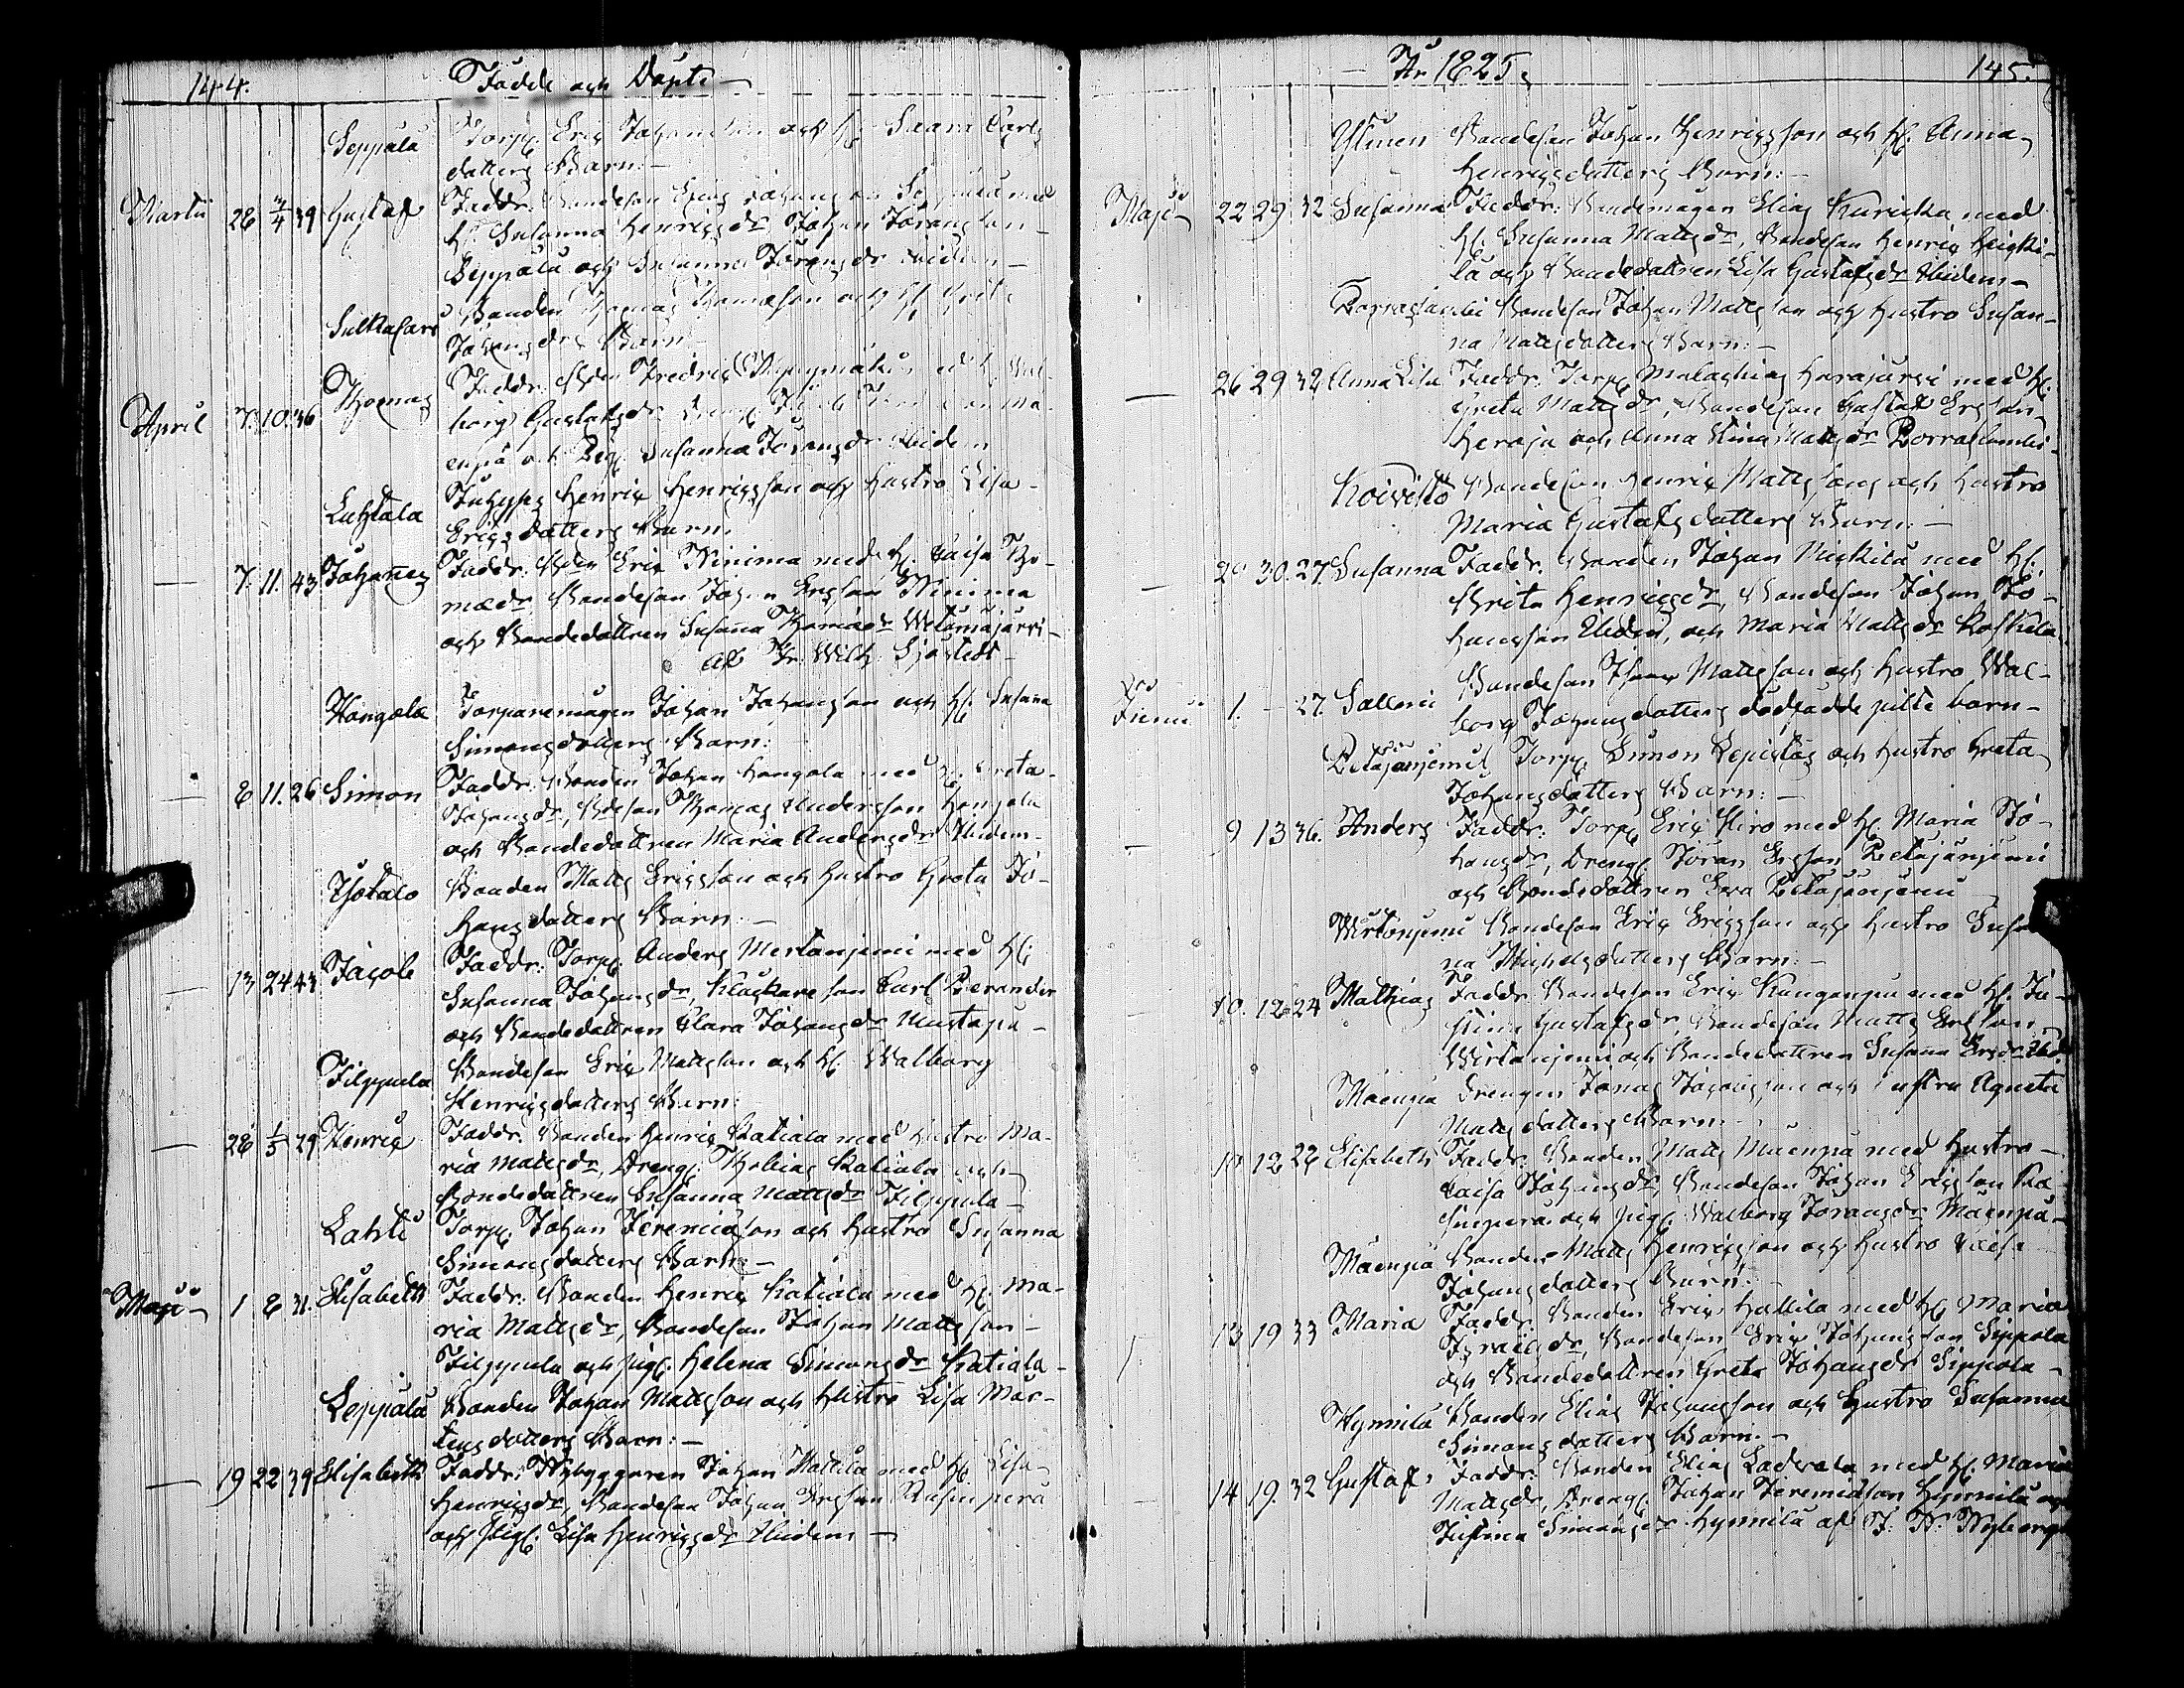 144. Födde och Döpte
Seppälä Torp. Eric Johansson och H. Saara Carls
datters Barn:
Martii 28 3/4 39 Gustaf Faddr: Bondeson Johansson Seppälä med
H. Susanna Henricsdr, Johan Johansson
Seppälä och Susanna Johansdr ibidem
Sulkasari Bonden Thomas Thomasson och H. Greta
Johansdrs Barn
April 7. 10. 36 Thomas Faddr: Bden Fredric med H. Wal-
borg Gustafsdr
och Pig. Susanna Johansdr ibidem
Luhtala Inhyses Henric Henricsson och Hustro Lisa
Ericsdatters Barn.
7. 11. 43 Johannes Faddr: Bden Eric Niinima med H. Caisa Tho-
madr, Bondeson Johan Ersson Niinima
och Bondedottren Susanna Thomædr Wetämäjärvi
af Fr: Wilh. Sjöstedt
Hangala Torparemågen Johan Johansson och H. Susanna
Simonsdotters Barn:
8 11. 26 Simon Faddr: Bonden Johan Hangala med H. Greta
Johansdr, Bdeson Thomas Andersson Hangala
och Bondedottren Maria Andersdr ibidem
Ylötalo Bonden Matts Ericsson och Hustro Greta Jo-
hansdatters Barn:
13 24 43 Jacob Faddr: Torp. Anders Mertanjemi med H:
Susanna Johansdr, Klockare son Carl Berander
och Bondedottren Clara Johansdr Mustapä
Filppula Bondeson Eric Mattsson och H. Walborg
Henricsdatters Barn:
28 1/5 29 Henric Faddr: Bonden Henric Katiala med Hustro Ma-
ria Mattsdr, Dreng. Thobias Katiala och
Bondedottren Susanna Mattsdr Filppula
Lahti Torp. Johan Jeremiasson och Hustro Susanna
Simonsdatters Barn:
Maji 1 8 31. Elisabeth Faddr: Bonden Henric Katiala med H. Ma-
ria Mattsdr, Bondeson Johan Mattsson
Filppula och Pig. Helena Simonsdr Katiala
Leppälä Bonden Johan Mattsson och Hustro Lisa Mår-
tensdotters Barn:
19 22 39 Elisabeth Faddr: Nybyggaren Johan Mattila med H. Lisa
Henricsdr, Bondeson Johan Ersson Rasinperä
och Pig. Lisa Henricsdr ibidem
År 1825. 145.
Ylinen Bondeson Johan Henricsson och H. Anna
Henricsdatters Barn:
Maji 22 29 32 Susanna Faddr: Bondemågen Elias Kuricka med
H. Susanna Mattsdr, Bondeson Henric Heicki-
lä och Bondedottren Lisa Gustafsdr ibidem
Porraslambi Bondeson Johan Mattsson och Hustro Susan-
na Mattsdotters Barn:
26 29 32 Anna Lisa Faddr: Torp. Malachias Harajärvi med H.
Greta Mattsdr, Bondeson Gustaf Ersson
Heroja och Anna Stina Mattsdr Porraslambi
Koivisto Bondeson Henric Mattssons och Hustro
Maria Gustafsdatters Barn:
30. 27 Susanna Faddr: Bonden Johan Mickilä med H.
Brita Henricsdr, Bondeson Johan Jo-
hansson ibidem, och Maria Mattsdr Koskela
Junii 1. — 27. Salloni Bondeson Isaac Mattsson och Hustro Wal-
borg Johansdotters dödfödde piltebarn
Petäjänjemi Torp. Simon Lepistös och Hustro Greta
Johansdotters Barn:
9 13 36. Anders Faddr: Torp. Eric Hiro med H. Maria Jo-
hansdr, Dreng. Jöran Ersson Petäjänjemi
och Bondedottren Eva Petäjänjemi
Wirtanjemi Bondeson Eric Ericsson och Hustro Susan
na Michelsdotters Barn:
10. 12 24 Mathias Faddr: Bondeson Eric Kangaspä med H. Ju-
stina Gustafsdr, Bondeson Matts Ersson
Wirtanjemi och Bondedottren Susanna Ersdr ibid.
Mäenpä Drengen Jonas Johansson och Hustru Agneta
Mattsdotters Barn:
10 12 28 Elisabeth Faddr: Bonden Matts Mäenpä med Hustro
Caisa Johansdr, Bondeson Johan Ericsson Ra-
sinperä och Pig. Walborg Jöransdr Mäenpä
Mäenpä Bonden Matts Henricsson och Hustro Caisa
Johansdotters Barn:
13 19 33 Maria Faddr: Bonden Eric Hallila med H. Maria
Israelsdr, Bondeson Eric Johansson Sippola
och Bondedottren Greta Johansdr Sippola
Hynnilä Bonden Elias Johansson och Hustro Susanna
Simonsdotters Barn:
14 19. 32 Gustaf. Faddr: Bonden Elias Ladvala med H. Maria
Mattsdr, Dreng. Johan Jeremiasson Hynnilä och
Justina Simonsdr Hynnilä af J. N. Nyberg